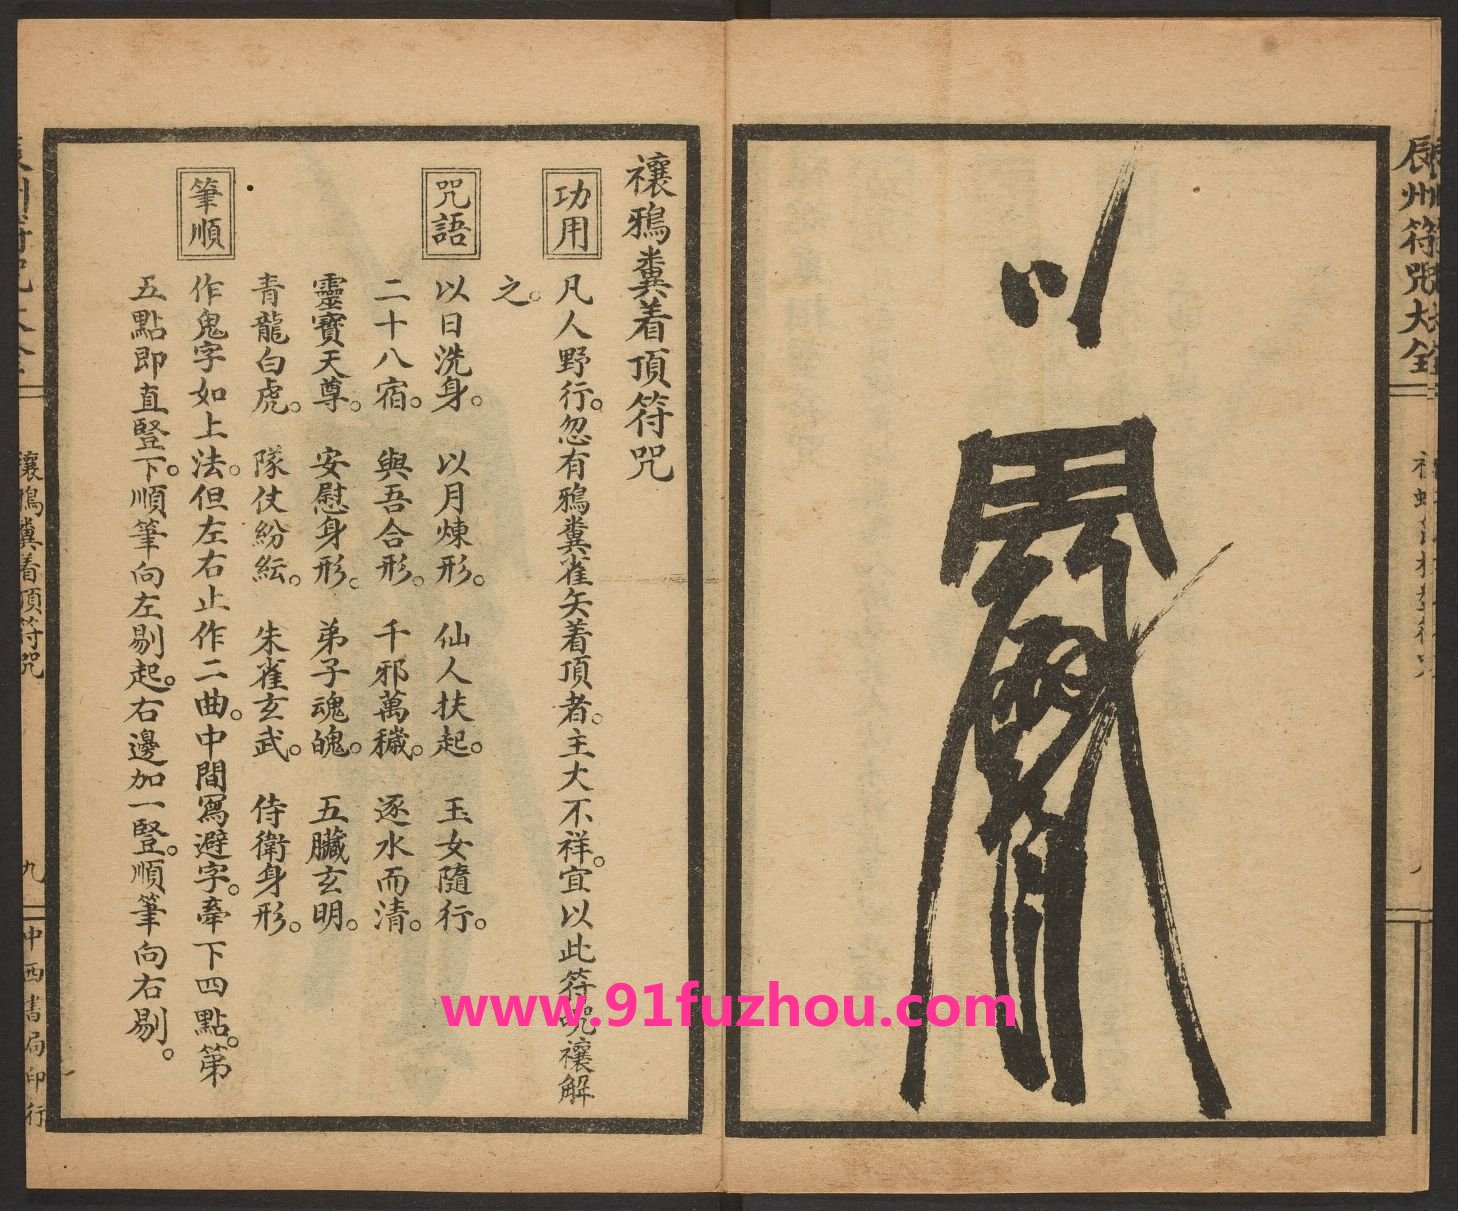 辰州符咒大全
禳鴉糞着頂符咒
功用
凡人野行。忽有鴉糞雀矢着頂者。主大不祥。宜以此符咒禳解
之。
咒語
以日洗身。 以月煉形。 仙人扶起。 玉女隨行。
二十八宿。 與吾合形。 千邪萬穢。 逐水而清。
靈寶天尊。 安慰身形。 弟子魂魄。 五臟玄明。
青龍白虎。 隊仗紛紜。 朱雀玄武。 侍衛身形。
筆順
作鬼字如上法。但左右止作二曲。中間寫避字。牽下四點。第
五點即直豎下。順筆向左剔起。右邊加一豎。順筆向右剔。
禳鴉糞着頂符咒
九
中西書局印行
www.91fuzhou.com